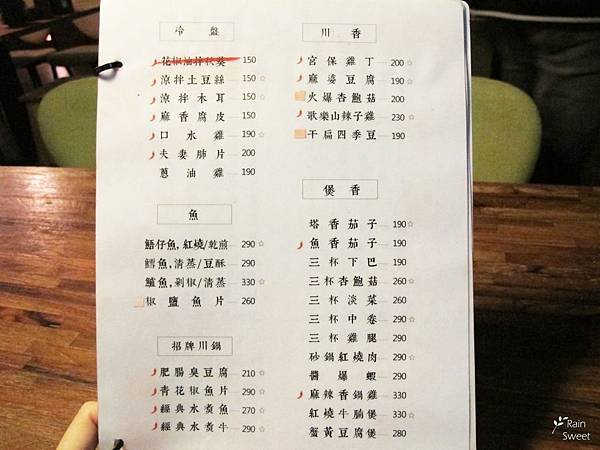 冷盤
花椒油拌秋葵 150
涼拌土豆絲 150 ☆
涼拌木耳 150
麻香腐皮 150
口水雞 190 ☆
夫妻肺片 200
蔥油雞 190
魚
鯃仔魚,紅燒/乾煎 290 ☆
鱈魚,清蒸/豆酥 290
鱸魚,剁椒/清蒸 330 ☆
椒鹽魚片 260
招牌川鍋
肥腸臭豆腐 210 ☆
青花椒魚片 290
經典水煮魚 270 ☆
經典水煮牛 290 ☆
川香
宮保雞丁 200 ☆
麻婆豆腐 190 ☆
火爆杏鮑菇 200
歌樂山辣子雞 230 ☆
干扁四季豆 190
煲香
塔香茄子 190 ☆
魚香茄子 190
三杯下巴 190
三杯杏鮑菇 260 ☆
三杯淡菜 260
三杯中卷 290 ☆
三杯雞腿 290
砂鍋紅燒肉 290 ☆
醬爆蝦 290
麻辣香鍋雞 330 ☆
紅燒牛腩煲 330 ☆
蟹黃豆腐煲 280
Rain
Sweet